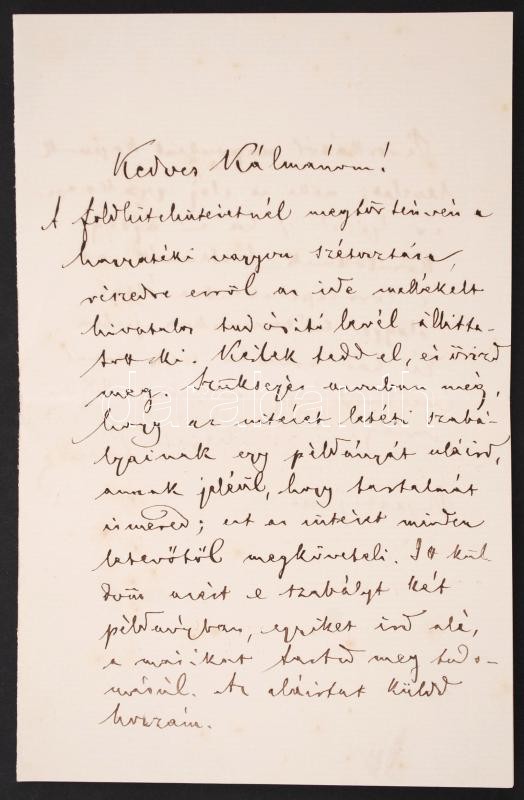 Kedves Kálmánom!
A földhitelintézetnél megtörténvén a
hagyatéki vagyon szétosztása,
részedre erről az ide mellékelt
hivatalos tudósító levél állitta-
tott ki. Kérlek tedd el, és őrizd
meg. Szükséges azonban még,
hogy az intézet letéti szabá-
lyainak egy példányát aláird,
annak jeléül, hogy tartalmát
ismered; ezt az intézet minden
letevőtől megköveteli. Itt kül-
döm azért e szabályt két
példányban, egyiket ird alá,
a másikat tartsd meg tudo-
másúl. Az aláirtat küldd
hozzám.
darabanth